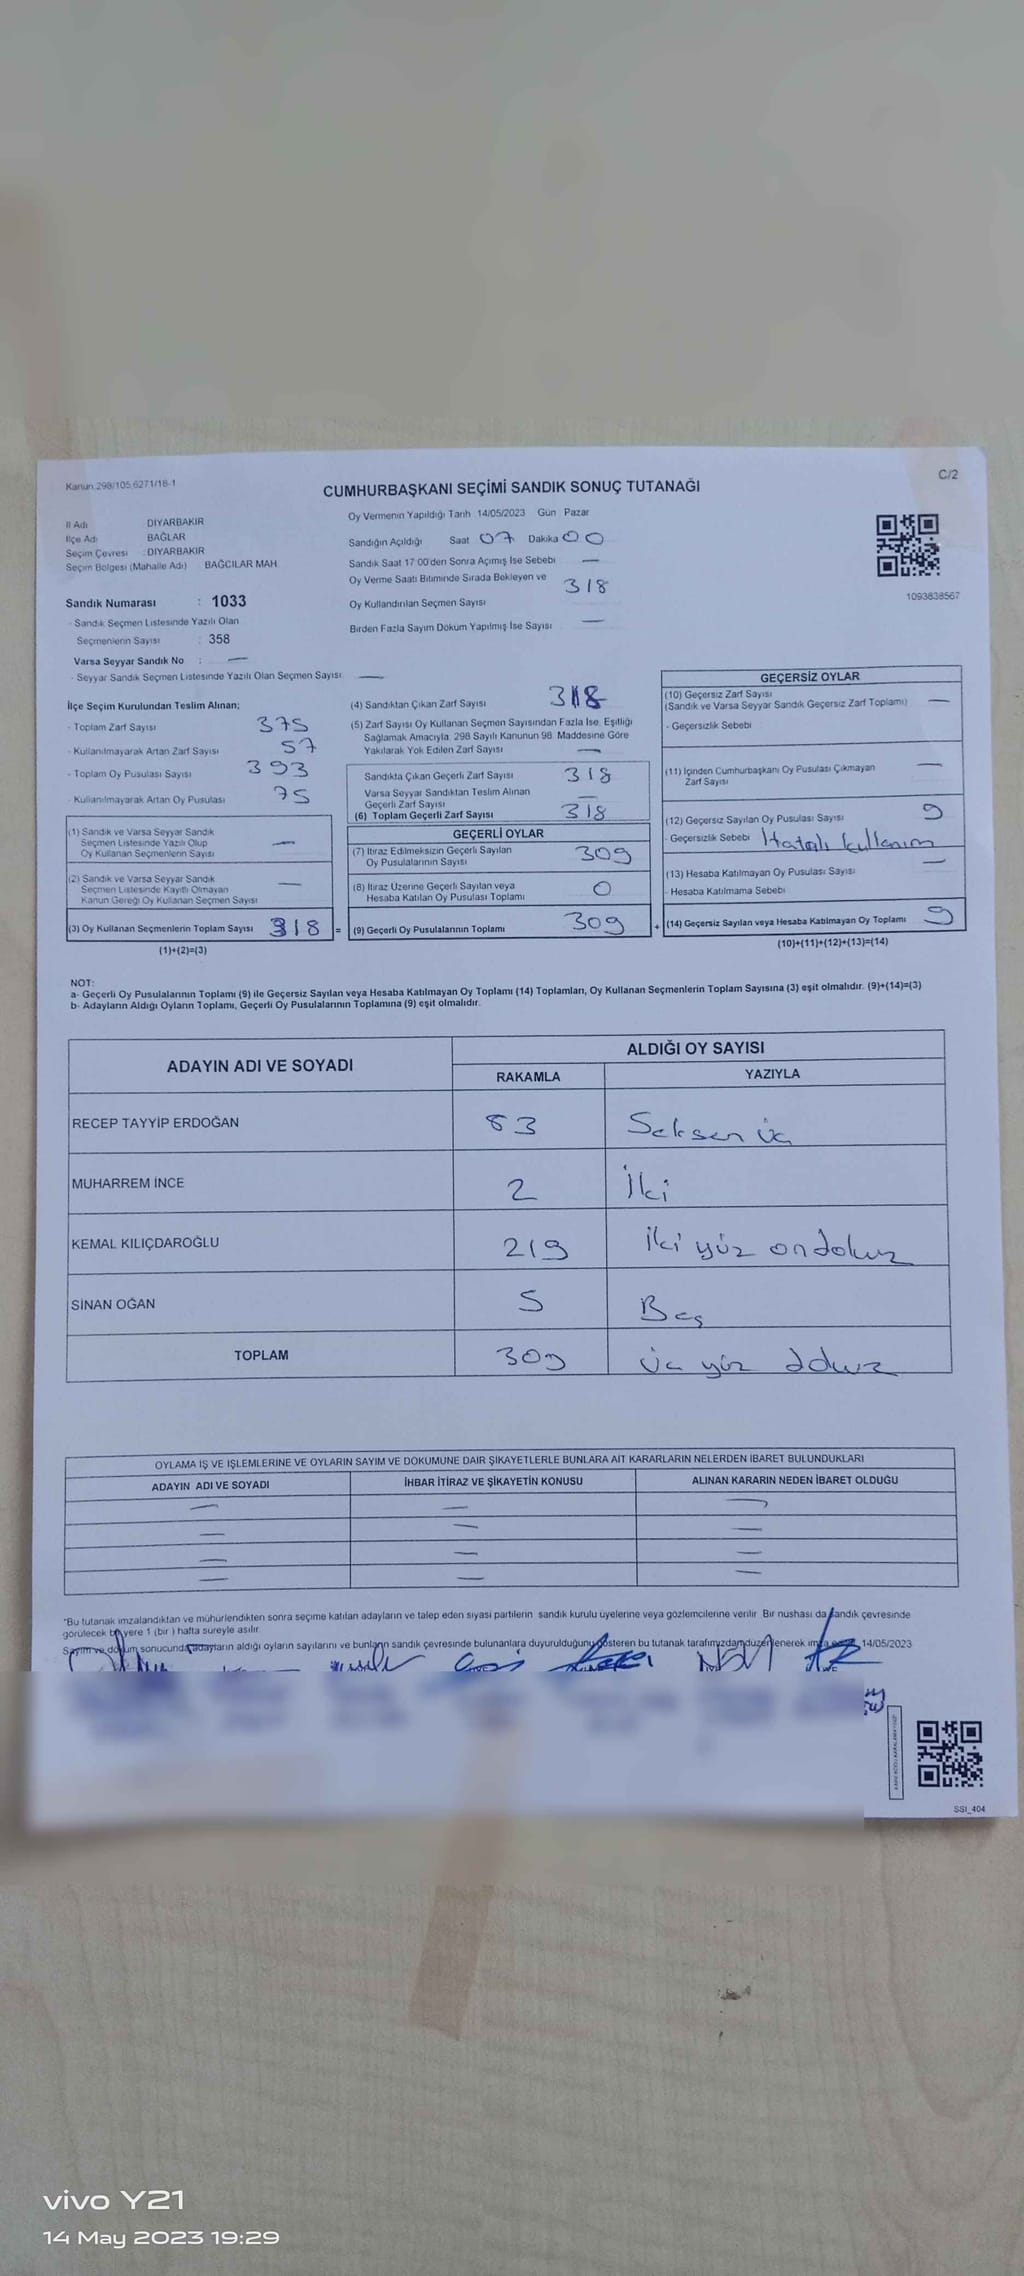 Kanun.298/105,6271/18-1
C/2
CUMHURBAŞKANI SEÇİMİ SANDIK SONUÇ TUTANAĞI
İl Adı DİYARBAKIR
İlçe Adı BAĞLAR
Seçim Çevresi : DİYARBAKIR
Seçim Bölgesi (Mahalle Adı) BAĞCILAR MAH
Sandık Numarası : 1033
- Sandık Seçmen Listesinde Yazılı Olan
Seçmenlerin Sayısı : 358
Varsa Seyyar Sandık No : —
- Seyyar Sandık Seçmen Listesinde Yazılı Olan Seçmen Sayısı —
Oy Vermenin Yapıldığı Tarih 14/05/2023 Gün Pazar
Sandığın Açıldığı Saat 07 Dakika 00
Sandık Saat 17 00'den Sonra Açımış İse Sebebi —
Oy Verme Saati Bitiminde Sırada Bekleyen ve
Oy Kullandırılan Seçmen Sayısı 318
Birden Fazla Sayım Döküm Yapılmış İse Sayısı —
1093838567
İlçe Seçim Kurulundan Teslim Alınan;
- Toplam Zarf Sayısı 375
- Kullanılmayarak Artan Zarf Sayısı 57
- Toplam Oy Pusulası Sayısı 393
- Kullanılmayarak Artan Oy Pusulası 75
(1) Sandık ve Varsa Seyyar Sandık
Seçmen Listesinde Yazılı Olup
Oy Kullanan Seçmenlerin Sayısı —
(2) Sandık ve Varsa Seyyar Sandık
Seçmen Listesinde Kayıtlı Olmayan
Kanun Gereği Oy Kullanan Seçmen Sayısı —
(3) Oy Kullanan Seçmenlerin Toplam Sayısı 318 =
(1)+(2)=(3)
(4) Sandıktan Çıkan Zarf Sayısı 318
(5) Zarf Sayısı Oy Kullanan Seçmen Sayısından Fazla İse, Eşitliği
Sağlamak Amacıyla, 298 Sayılı Kanunun 98. Maddesine Göre
Yakılarak Yok Edilen Zarf Sayısı —
Sandıkta Çıkan Geçerli Zarf Sayısı 318
Varsa Seyyar Sandıktan Teslim Alınan
Geçerli Zarf Sayısı —
(6) Toplam Geçerli Zarf Sayısı 318
GEÇERLİ OYLAR
(7) İtiraz Edilmeksizin Geçerli Sayılan
Oy Pusulalarının Sayısı 309
(8) İtiraz Üzerine Geçerli Sayılan veya
Hesaba Katılan Oy Pusulası Toplamı 0
(9) Geçerli Oy Pusulalarının Toplamı 309 +
GEÇERSİZ OYLAR
(10) Geçersiz Zarf Sayısı
(Sandık ve Varsa Seyyar Sandık Geçersiz Zarf Toplamı) —
- Geçersizlik Sebebi
(11) İçinden Cumhurbaşkanı Oy Pusulası Çıkmayan
Zarf Sayısı —
(12) Geçersiz Sayılan Oy Pusulası Sayısı 9
- Geçersizlik Sebebi Hatalı kullanım
(13) Hesaba Katılmayan Oy Pusulası Sayısı —
- Hesaba Katılmama Sebebi
(14) Geçersiz Sayılan veya Hesaba Katılmayan Oy Toplamı 9
(10)+(11)+(12)+(13)=(14)
NOT:
a- Geçerli Oy Pusulalarının Toplamı (9) ile Geçersiz Sayılan veya Hesaba Katılmayan Oy Toplamı (14) Toplamları, Oy Kullanan Seçmenlerin Toplam Sayısına (3) eşit olmalıdır. (9)+(14)=(3)
b- Adayların Aldığı Oyların Toplamı, Geçerli Oy Pusulalarının Toplamına (9) eşit olmalıdır.
ADAYIN ADI VE SOYADI ALDIĞI OY SAYISI
RAKAMLA YAZIYLA
RECEP TAYYİP ERDOĞAN 83 Seksen üç
MUHARREM İNCE 2 İki
KEMAL KILIÇDAROĞLU 219 İki yüz ondokuz
SİNAN OĞAN 5 Beş
TOPLAM 309 üç yüz dokuz
OYLAMA İŞ VE İŞLEMLERİNE VE OYLARIN SAYIM VE DÖKÜMÜNE DAİR ŞİKAYETLERLE BUNLARA AİT KARARLARIN NELERDEN İBARET BULUNDUKLARI
ADAYIN ADI VE SOYADI İHBAR İTİRAZ VE ŞİKAYETİN KONUSU ALINAN KARARIN NEDEN İBARET OLDUĞU
— — —
— — —
— — —
— — —
*Bu tutanak imzalandıktan ve mühürlendikten sonra seçime katılan adayların ve talep eden siyasi partilerin sandık kurulu üyelerine veya gözlemcilerine verilir. Bir nushası da sandık çevresinde
görülecek bir yere 1 (bir) hafta süreyle asılır.
Sayım ve döküm sonucunda adayların aldığı oyların sayılarını ve bunların sandık çevresinde bulunanlara duyurulduğunu gösteren bu tutanak tarafımızdan düzenlenerek 14/05/2023
SSI_404
vivo Y21
14 May 2023 19:29